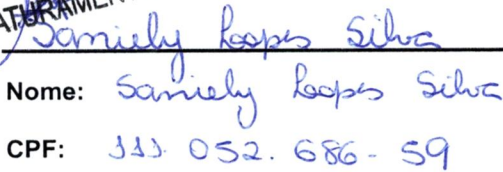 Saniely Lopes Silva
Nome: Saniely Lopes Silva
CPF: 111.052.686-59